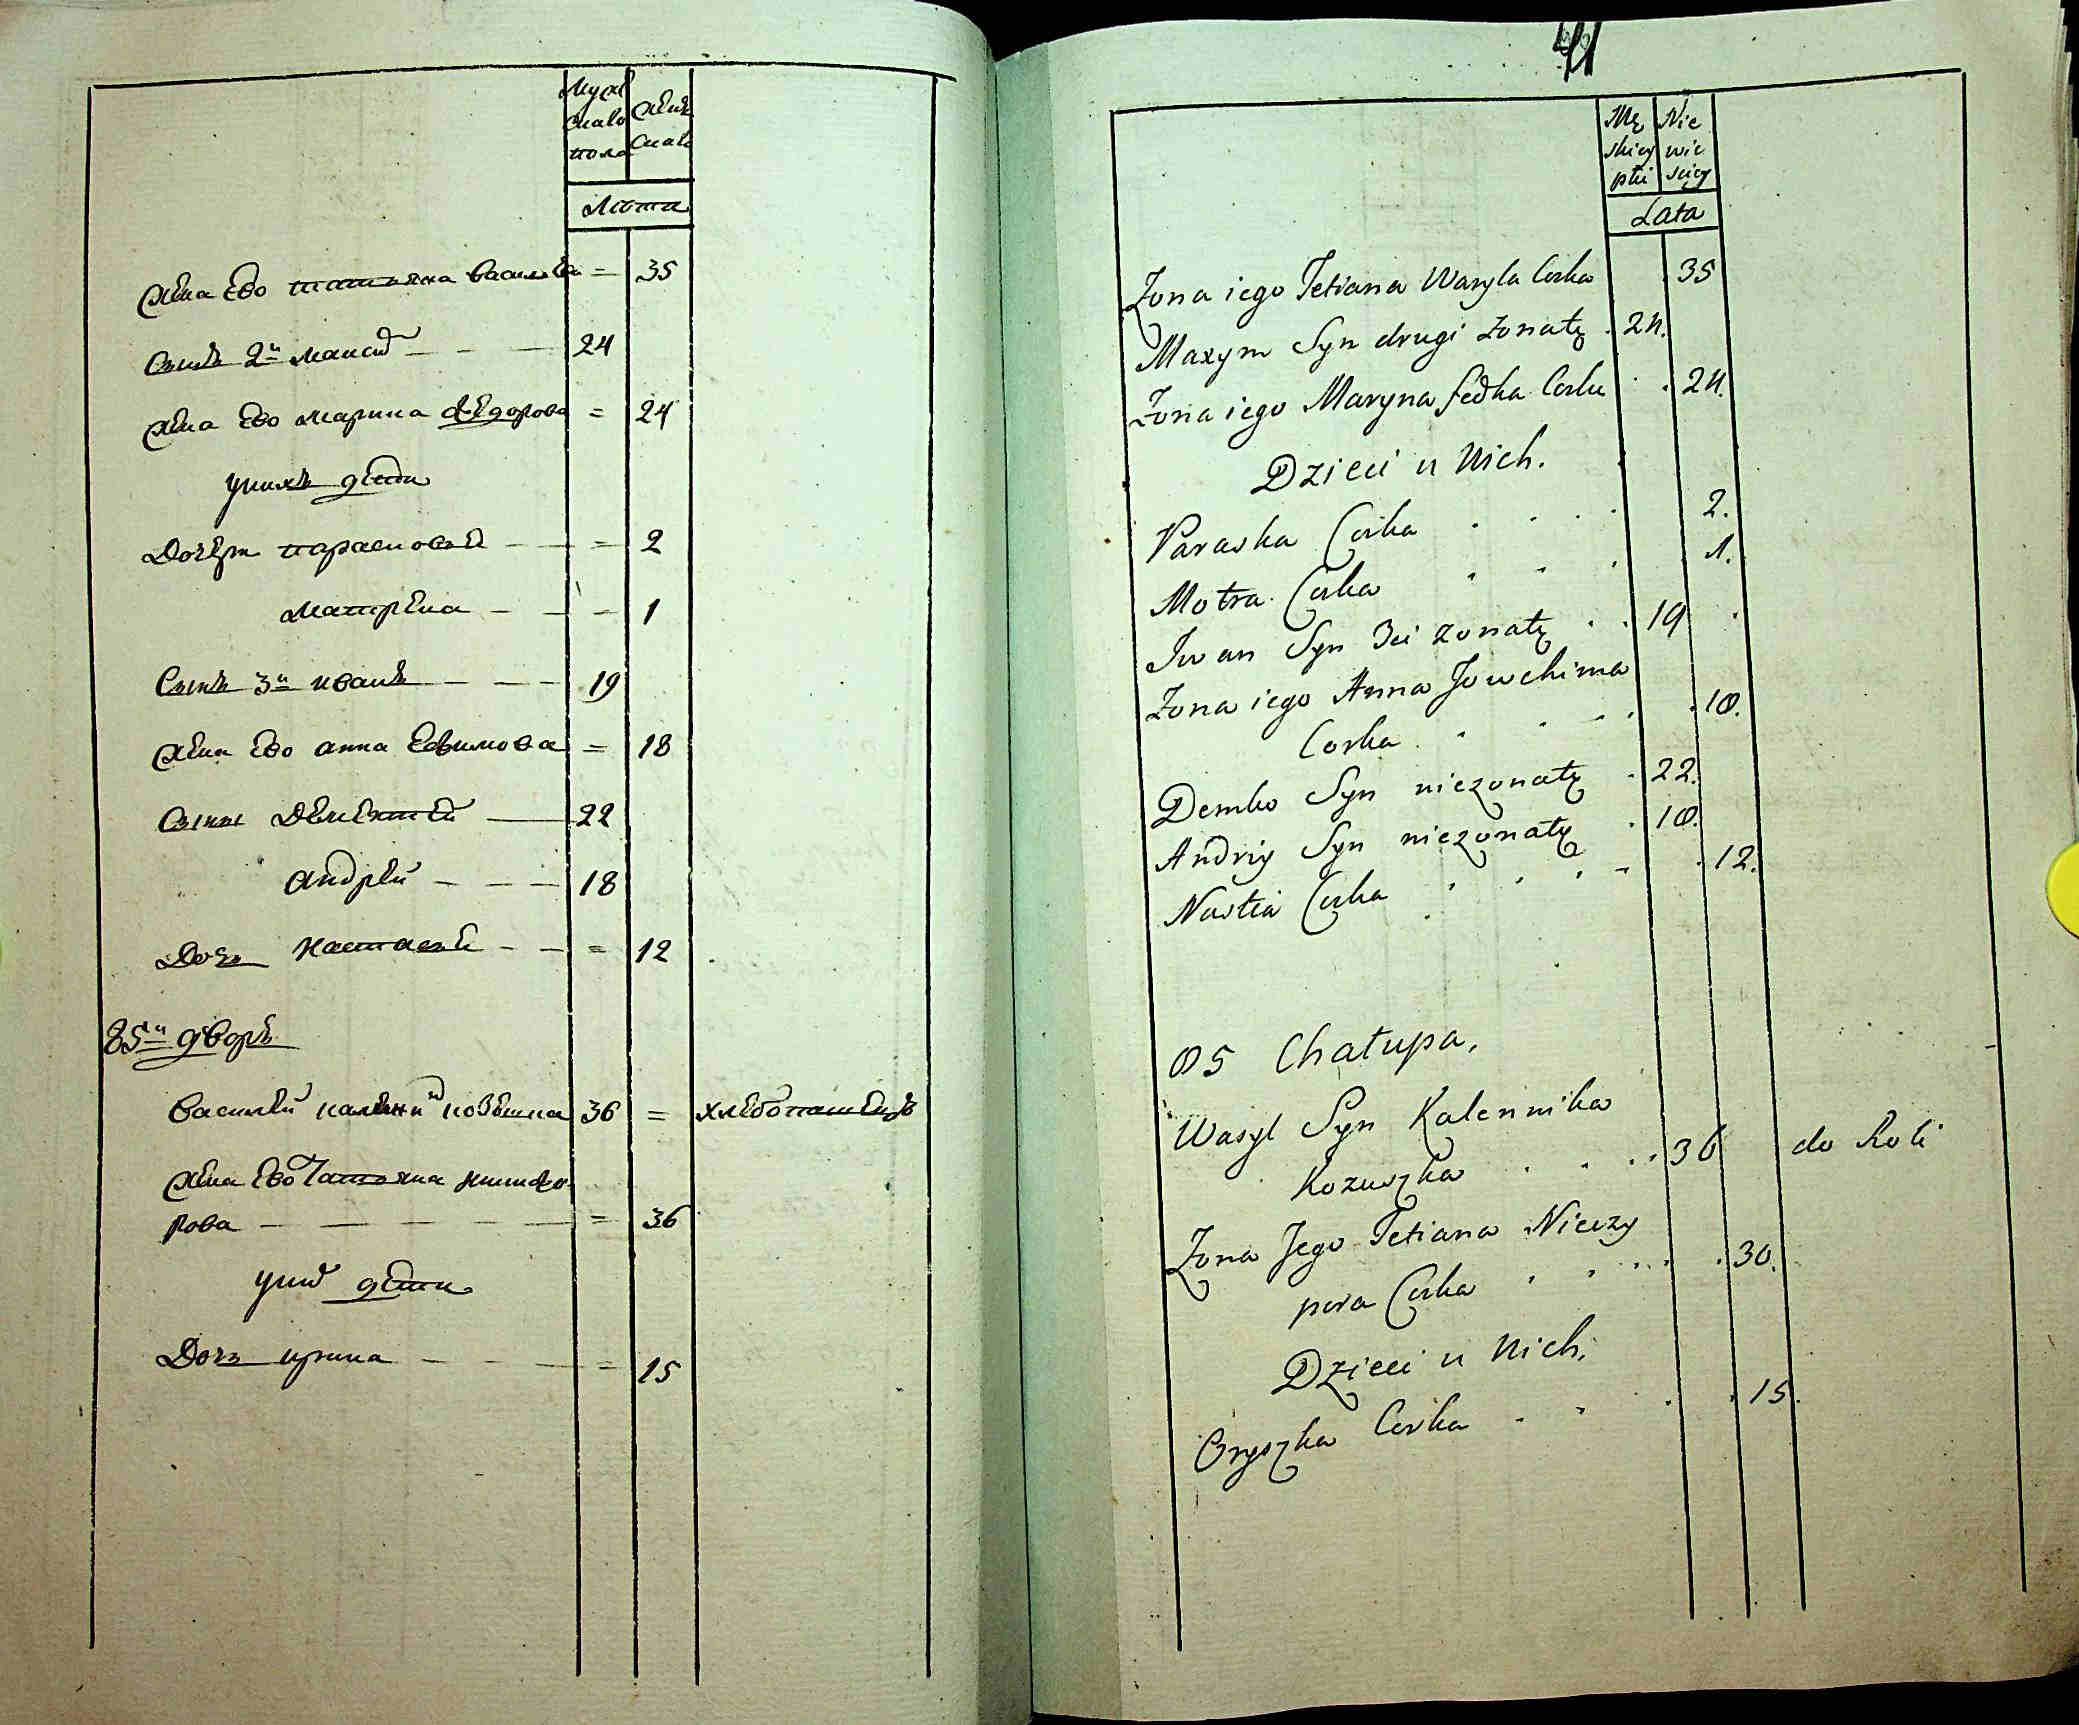 Мужска пола
Женска
Лѣта
жена ево татьяна василева = 35
Сынъ 2й максим 24
жена ево марина федорова = 24
у нихъ дети
Дочери парасковея = 2
матрена 1
Сынъ 3й иванъ 19
жена ево анна Ефимова = 18
Сыны Дементей 22
андрей 18
Дочь настасея = 12
85й дворъ
василей калени 36 = хлебопашецъ
жена ево Татьяна никифо-
рова = 36
у них дети
Дочь ирина = 15
41
Mę Nie
skiey wie
płci sciey
Lata
Zona iego Tetiana Wasyla Corka 35
Maxym Syn drugi zonaty 24.
Zona iego Maryna Fedka Corka 24.
Dzieci u Nich.
Paraska Corka 2.
Motra Corka 1.
Iwan Syn 3ci zonaty 19
Zona iego Anna Jowchima
Corka 18.
Demko Syn niezonaty 22.
Andriy Syn niezonaty 18.
Nastia Corka 12.
85 Chałupa,
Wasyl Syn Kalennika
Kozuszka 36 do Roli
Zona Jego Tetiana Niczy
pora Corka 30.
Dzieci u Nich.
Oryszka Corka 15.